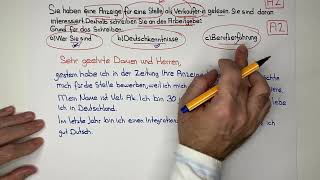 Sie haben eine Anzeige für eine Stelle als Verkäufer/in gelesen. Sie sind daran
interessiert. Deshalb schreiben Sie an den Arbeitgeber.
Grund für das Schreiben:
A2
a) Wer Sie sind b) Deutschkenntnisse c) Berufserfahrung
Sehr geehrte Damen und Herren,
gestern habe ich in der Zeitung Ihre Anzeige
mich für die Stelle bewerben, weil ich mich
Mein Name ist Ali. Ich bin 30
in Deutschland.
Im letzte Jahr bin ich einen Integration
gut Dutsch.